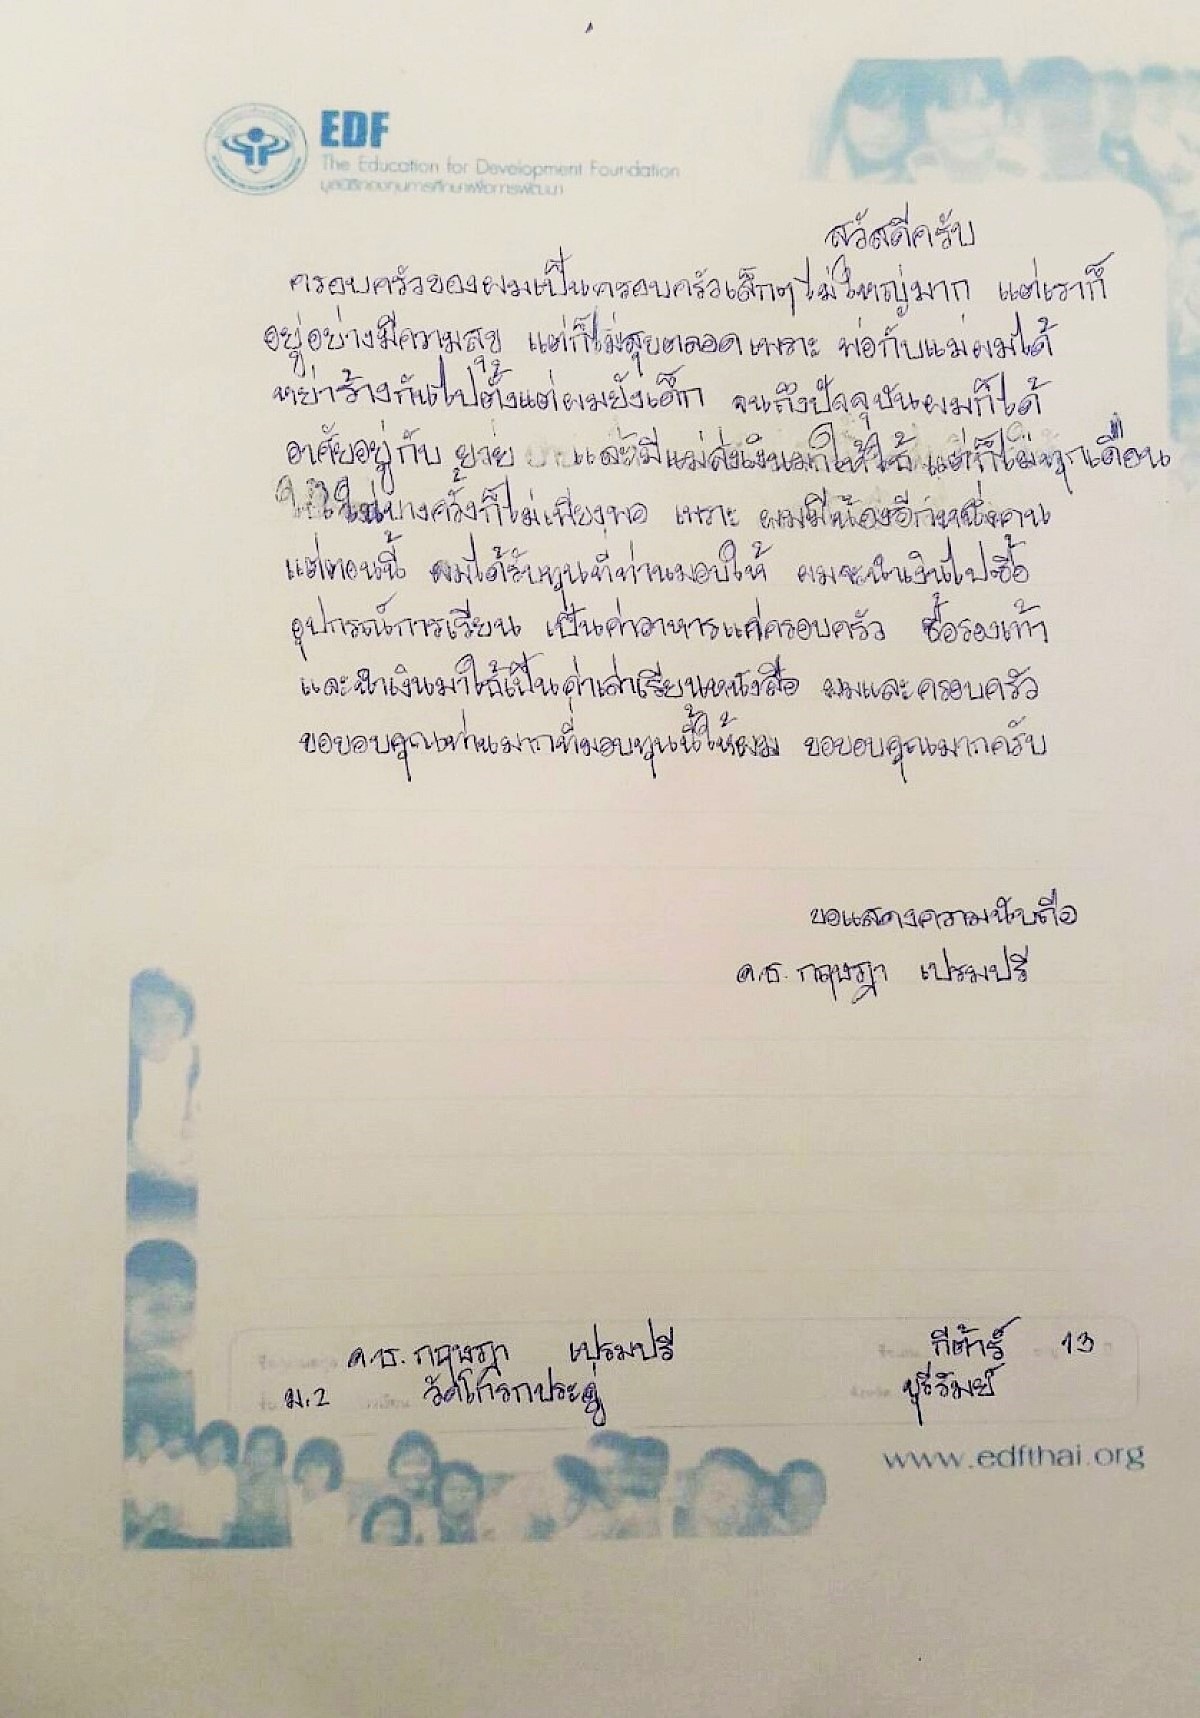 EDF
The Education for Development Foundation
มูลนิธิกองทุนการศึกษาเพื่อการพัฒนา
สวัสดีครับ
ครอบครัวของผมเป็นครอบครัวเล็กๆไม่ใหญ่มาก แต่เราก็
อยู่อย่างมีความสุข แต่ก็ไม่สุขตลอดเพราะ พ่อกับแม่ผมได้
หย่าร้างกันไปตั้งแต่ผมยังเด็ก จนถึงปัจจุบันผมก็ได้
อาศัยอยู่กับ ยาย และมีแม่ส่งเงินมาให้ใช้ แต่ก็ไม่ทุกเดือน
บางครั้งก็ไม่เพียงพอ เพราะ ผมมีน้องอีกหนึ่งคน
แต่ตอนนี้ ผมได้รับทุนที่ท่านมอบให้ ผมจะนำเงินไปซื้อ
อุปกรณ์การเรียน เป็นค่าอาหารแก่ครอบครัว ซื้อรองเท้า
และนำเงินมาใช้เป็นค่าเล่าเรียนหนังสือ ผมและครอบครัว
ขอขอบคุณท่านมากที่มอบทุนนี้ให้ผม ขอขอบคุณมากครับ
ขอแสดงความนับถือ
ด.ช. กฤษฎา เปรมปรี
ด.ช. กฤษฎา เปรมปรี กีต้าร์ 13
ม.2 วัดโคกประดู่ บุรีรัมย์
www.edfthai.org